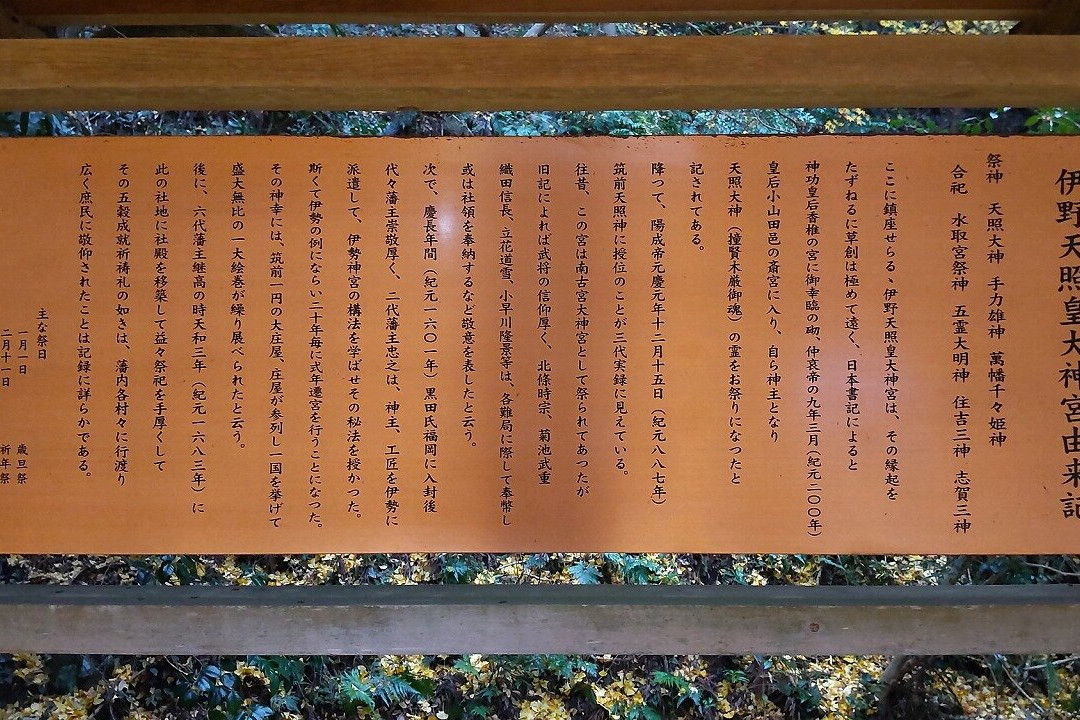 伊野天照皇大神宮由来記
祭神　天照大神　手力雄神　萬幡千々姫神
合祀　水取宮祭神　五霊大明神　住吉三神　志賀三神
ここに鎮座せらる、伊野天照皇大神宮は、その縁起を
たずねるに草創は極めて遠く、日本書記によると
神功皇后香椎の宮に御幸臨の砌、仲哀帝の九年三月（紀元二〇〇年）
皇后小山田邑の斎宮に入り、自ら神主となり
天照大神（撞賢木厳御魂）の霊をお祭りになつたと
記されてある。
降つて、陽成帝元慶元年十二月十五日（紀元八八七年）
筑前天照神に授位のことが三代実録に見えている。
往昔、この宮は南古宮大神宮として祭られてあつたが
旧記によれば武将の信仰厚く、北條時宗、菊池武重
織田信長、立花道雪、小早川隆景等は、各難局に際して奉幣し
或は社領を奉納するなど敬意を表したと云う。
次で、慶長年間（紀元一六〇一年）黒田氏福岡に入封後
代々藩主崇敬厚く、二代藩主忠之は、神主、工匠を伊勢に
派遣して、伊勢神宮の構法を学ばせその秘法を授かつた。
斯くて伊勢の例にならい二十年毎に式年遷宮を行うことになつた。
その神幸には、筑前一円の大庄屋、庄屋が参列し一国を挙げて
盛大無比の一大絵巻が繰り展べられたと云う。
後に、六代藩主継高の時天和三年（紀元一六八三年）に
此の社地に社殿を移築して益々祭祀を手厚くして
その五穀成就祈祷礼の如きは、藩内各村々に行渡り
広く庶民に敬仰されたことは記録に詳らかである。
主な祭日
一月一日　歳旦祭
二月十一日　祈年祭